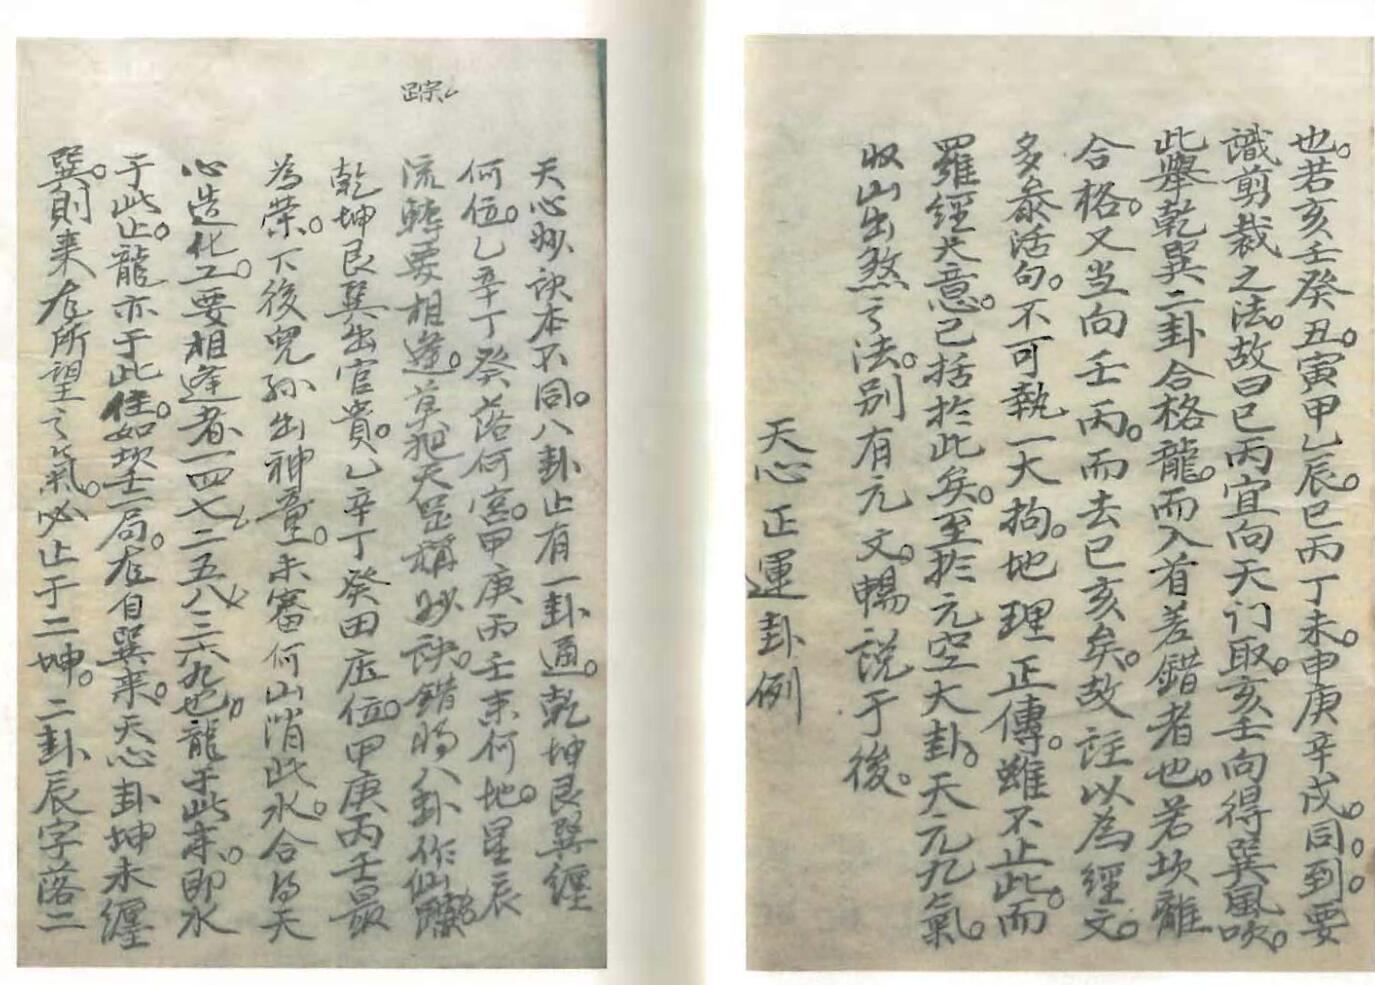 也。若亥壬癸丑。寅甲乙辰。巳丙丁未。申庚辛戌。同。到。要
識剪裁之法。故曰巳丙宜向天门取。亥壬向得巽風吹。
此舉乾巽二卦合格龍。而入首差錯者也。若坎離
合格。又当向壬丙。而去巳亥矣。故註以為經文。
多叅活句。不可執一大拘。地理正傳。雖不止此。而
羅經大意。已括於此矣。至於元空大卦。天元九氣。
收山出煞之法。别有元文。暢説于後。
天心正運卦例
踪
天心妙诀本不同。八卦止有一卦通。乾坤艮巽纏
何位。乙辛丁癸落何宮。甲庚丙壬来何地。星辰
流轉要相逢。莫把天罡稱妙诀。錯將八卦作仙
乾坤艮巽出官貴。乙辛丁癸田庄位。甲庚丙壬最
為荣。下後兒孫出神童。未審何山消此水。合得天
心造化工。要相逢者一四七二五八三六九也。龍于此来。即水
于此止。龍亦于此住。如坎一局。在自巽来。天心卦坤未纏
巽。則来在所望之氣。必止于二坤。二卦辰字落二